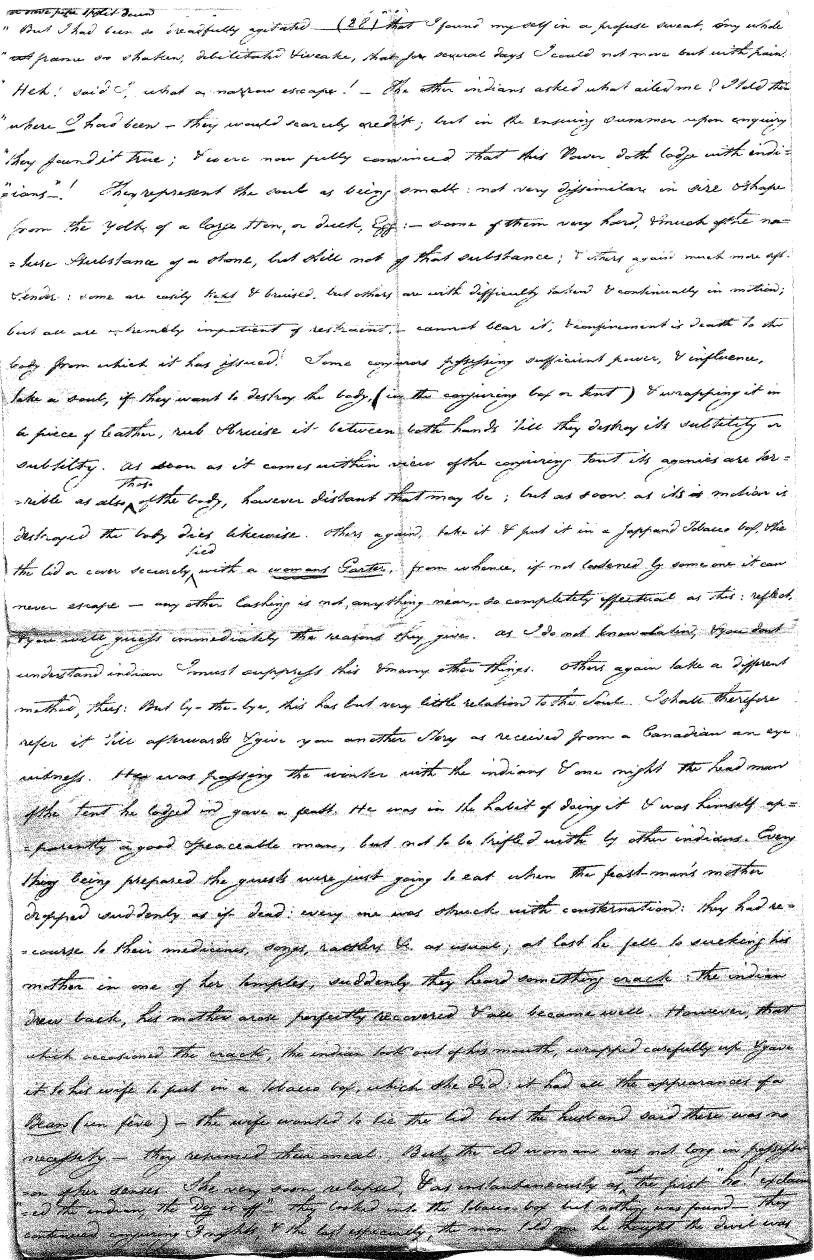 " But I had been so dreadfully agitated (28) that I found myself in a profuse sweat, my whole
" frame so shaken, debilitated & weake, that for several days I could not move but with pain.
" Heh! said I, what a narrow escape! – The other indians asked what ailed me? I told them
" where I had been – they would scarcely credit; but in the ensuing summer upon enquiry
" they found it true; & were now fully convinced that this Power doth lodge with indi=
"=ians"! They represent the soul as being small: not very dissimilar in size & shape
from the yolk of a large Hen, or duck, Egg: – some of them very hard, & much of the na=
=ture & substance of a stone, but still not of that substance; & others again much more soft
& tender: some are easily & bruised, but others are with difficulty taken & continually in motion;
but all are extremely impatient of restraint, – cannot bear it; & confinement is death to the
body from which it has issued. Some conjurors possessing sufficient power, & influence,
take a soul, if they want to destroy the body, (in the conjuring box or tent) & wrapping it in
a piece of leather, rub & bruise it between both hands 'till they destroy its subtility or
subtilty. As soon as it comes within view of the conjuring tent its agonies are ter=
=rible as also those of the body, however distant that may be; but as soon as its motion is
destroyed the body dies likewise. Others again, take it & put it in a Jappand Tobacco box, & tie
the lid or cover securely tied with a womans Garter, from whence, if not loosened by some one it can
never escape – any other lashing is not, anything near, so completely effectual as this: reflect,
& you will guess immediately the reasons they give. As I do not know latin, & you dont
understand indian I must suppress this & many other things. Others again take a different
method, thus: But by-the-bye, this has but very little relation to the Soul. I shall therefore
refer it 'till afterwards & give you another Story as received from a Canadian an eye
witness. He was passing the winter with the indians & one night the head man
of the tent he lodged in gave a feast. He was in the habit of doing it & was himself ap=
=parently a good & peaceable man, but not to be trifled with by other indians. Every
thing being prepared the guests were just going to eat when the feast-man's mother
dropped suddenly as if dead: every one was struck with consternation: they had re=
=course to their medicines, songs, rattlers &c. as usual; at last he fell to sucking his
mother in one of her temples, suddenly they heard something crack: the indian
drew back, his mother arose perfectly recovered & all became well. However, that
which occasioned the crack, the indian took out of his mouth, wrapped carefully up & gave
it to his wife to put in a tobacco box, which she did: it had all the appearances of a
Bean (un fêve) – the wife wanted to tie the lid but the husband said there was no
necessity – they resumed their meal. But the old woman was not long in possessi=
=on of her senses. She very soon relapsed, & as instantaneously as at the first "ho! exclaim=
=ed the indian, the Dog is off" they looked into the tobacco box but nothing was found – they
continued conjuring 3 nights, & the last especially, the man told me he thought the devil was